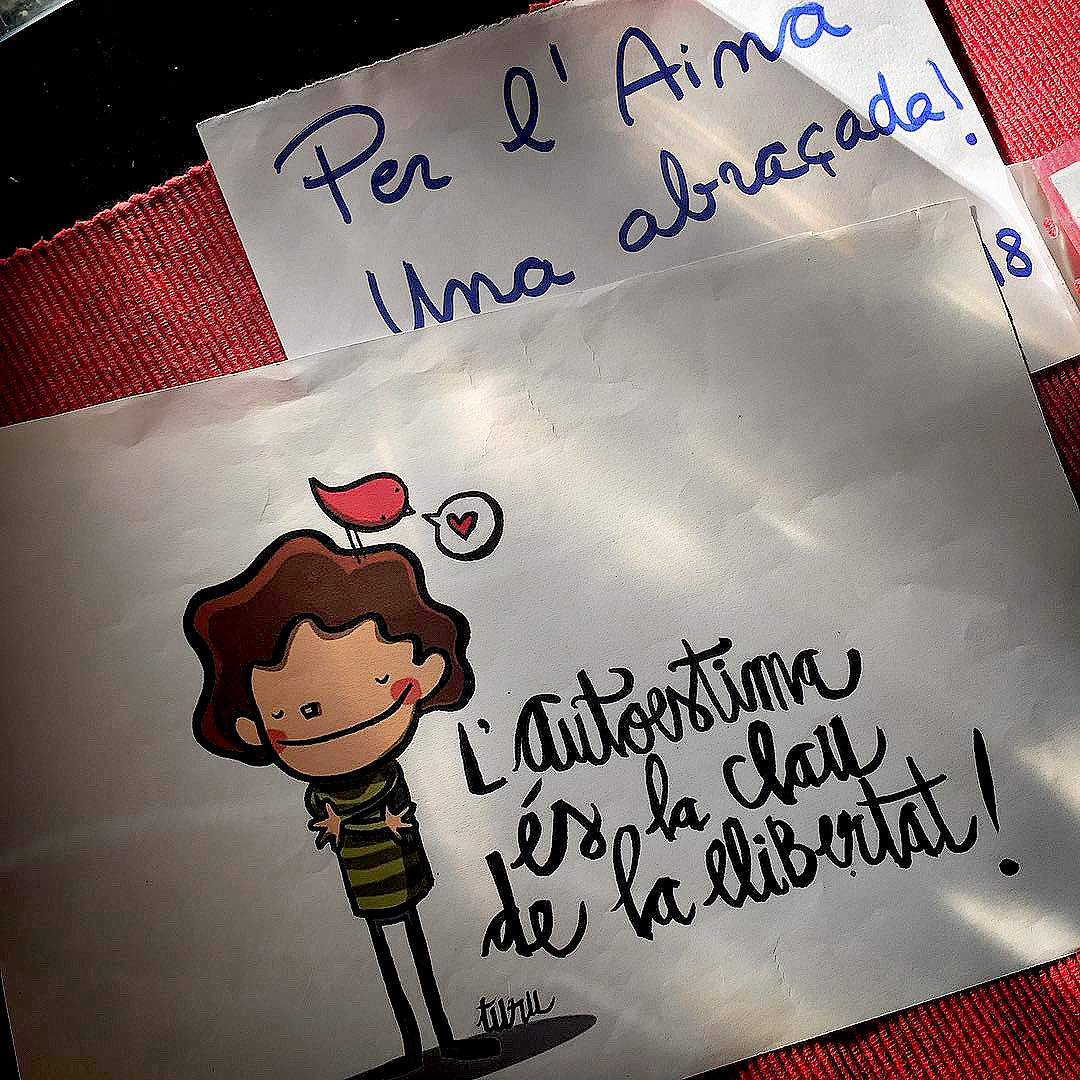 Per l'Aina
Una abraçada!
18
L'autoestima
és la clau
de la llibertat!
turu